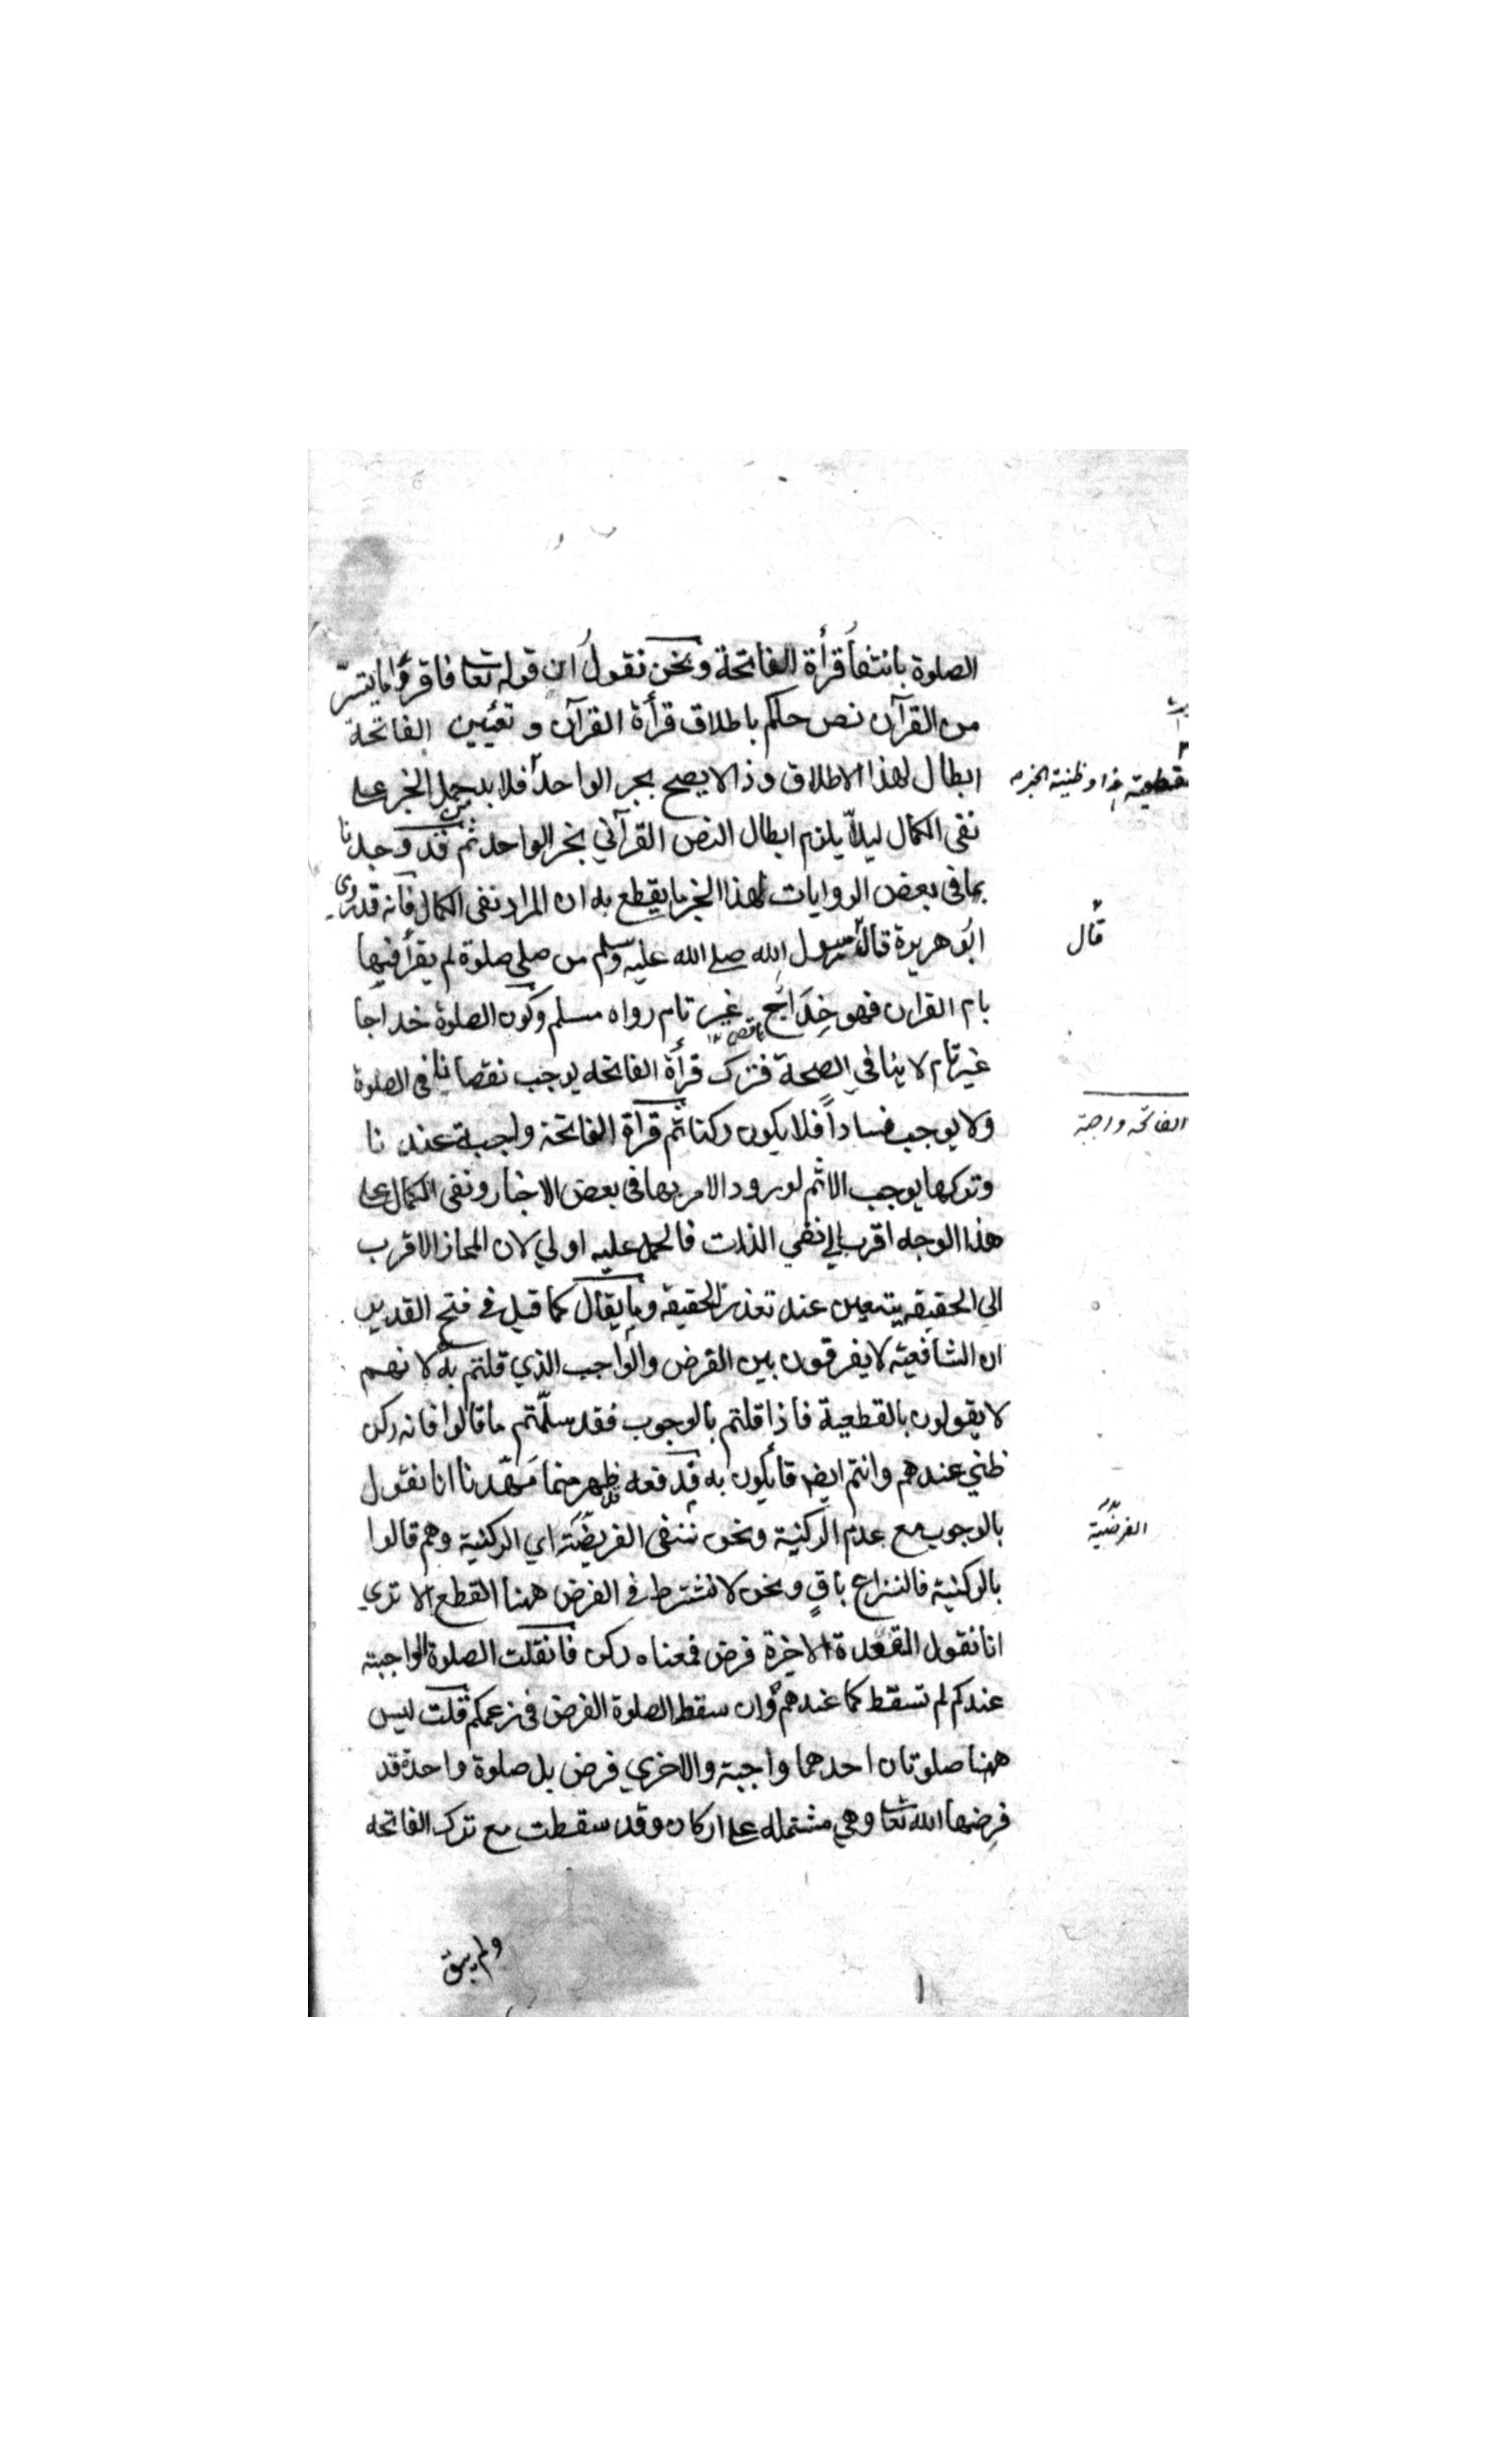 الصلوة بانتفأ قرأة الفاتحة ونحن نقول ان قوله تعا فاقرؤا ما يتسّر
من القرآن نص حاكم باطلاق قرأة القرآن و تعيين الفاتحة
ابطال لهذا الاطلاق وذا لا يصح بخبر الواحد فلا بد يحمل الخبر على
نفى الكمال ليلاّ يلزم ابطال النص القرآني بخبر الواحد ثم قد وجدنا
بما فى بعض الروايات لهذا الخبر ما يقطع به ان المراد نفى الكمال فانه قد روى
ابو هريرة قال رسول الله صلے الله عليه وسلم من صلى صلوة لم يقرأ فيها
بام القران فهو خِدَاج غير تام رواه مسلم وكون الصلوة خداجا
ناقص
غير تام لا ينافي الصحة فترك قرأة الفاتحه يوجب نقصانا فى الصلوة
ولا يوجب فساداً فلا يكون ركنا ثم قراة الفاتحة واجبة عند نا
وتركها يوجب الاثم لورود الامر بها فى بعض الاخبار ونفى الكمال على
هذا الوجه اقرب الي نفي الذات فالحمل عليه اولي لان المجاز الاقرب
الي الحقيقه يتعين عند تعذر الحقيقه وما يقال كما قيل في فتح القدير
ان الشافعيّة لا يفرقون بين الفرض والواجب الذي قلتم به لانهم
لا يقولون بالقطعية فاذا قلتم بالوجوب فقد سلّمتم ما قالوا فانه ركن
ظني عندهم وانتم ايضا قائلون به فدفعه قد ظهر مما مهّدنا انا نقول
بالوجوب مع عدم الركنية ونحن ننفى الفريضة اي الركنية وهم قالوا
بالركنية فالنزاع باقٍ ونحن لا نشترط في الفرض ههنا القطع الا تري
انا نقول القعدة الاخيرة فرض فمعناه ركن فان قلت الصلوة الواجبة
عندكم لم تسقط كما عندهم وان سقط الصلوة الفرض فى زعمكم قلت ليس
ههنا صلوتان احدهما واجبة والاخري فرض بل صلوة واحدة قد
فرضها الله تعا وهي مشتمله على اركان وقد سقطت مع ترك الفاتحه
ولم يبق
قال
الفاتحه واجبة
الفرضية